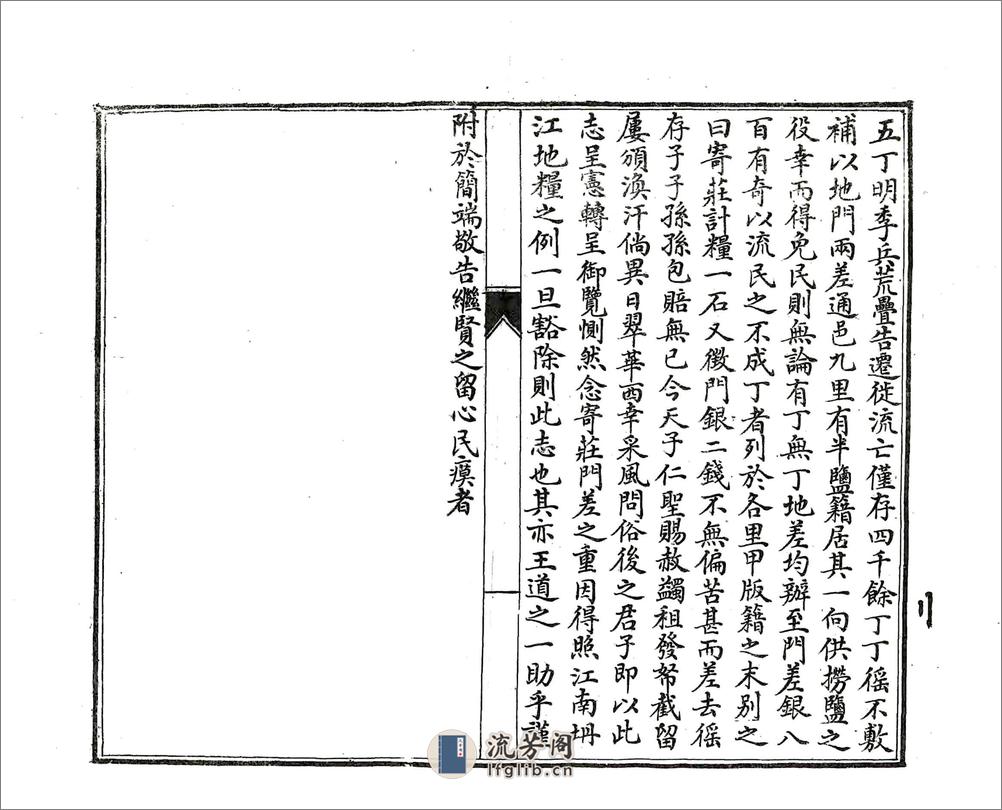 五丁明季兵荒疊告遷徙流亡僅存四千餘丁丁徭不敷
補以地門兩差通邑九里有半鹽籍居其一向供撈鹽之
役幸而得免民則無論有丁無丁地差均辦至門差銀八
百有奇以流民之不成丁者列於各里甲版籍之末別之
曰寄莊計糧一石又徵門銀二錢不無偏苦甚而差去徭
存子子孫孫包賠無已今天子仁聖賜赦蠲租發帑截留
屢頒渙汗倘異日翠華西幸采風問俗後之君子即以此
志呈憲轉呈御覽惻然念寄莊門差之重因得照江南坍
江地糧之例一旦豁除則此志也其亦王道之一助乎謹
附於簡端敬告繼賢之留心民瘼者
流芳阁
lfglib.cn